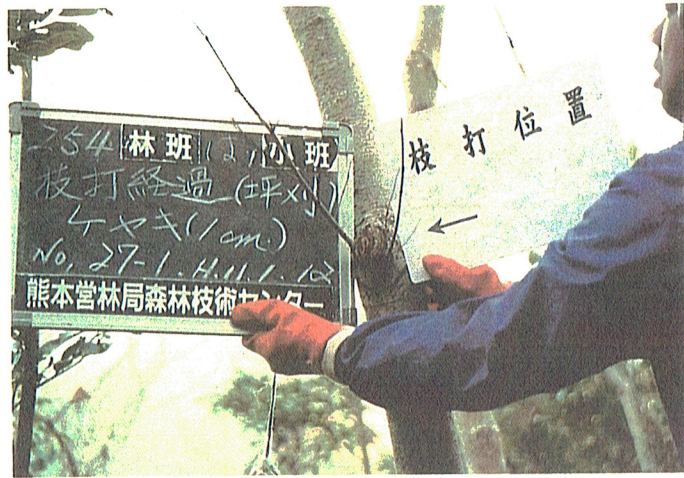 254 林班 は 小班
枝打経過(坪刈)
ケヤキ(1cm.)
No, 27-1. H.11.1.12
熊本営林局森林技術センター
枝打位置